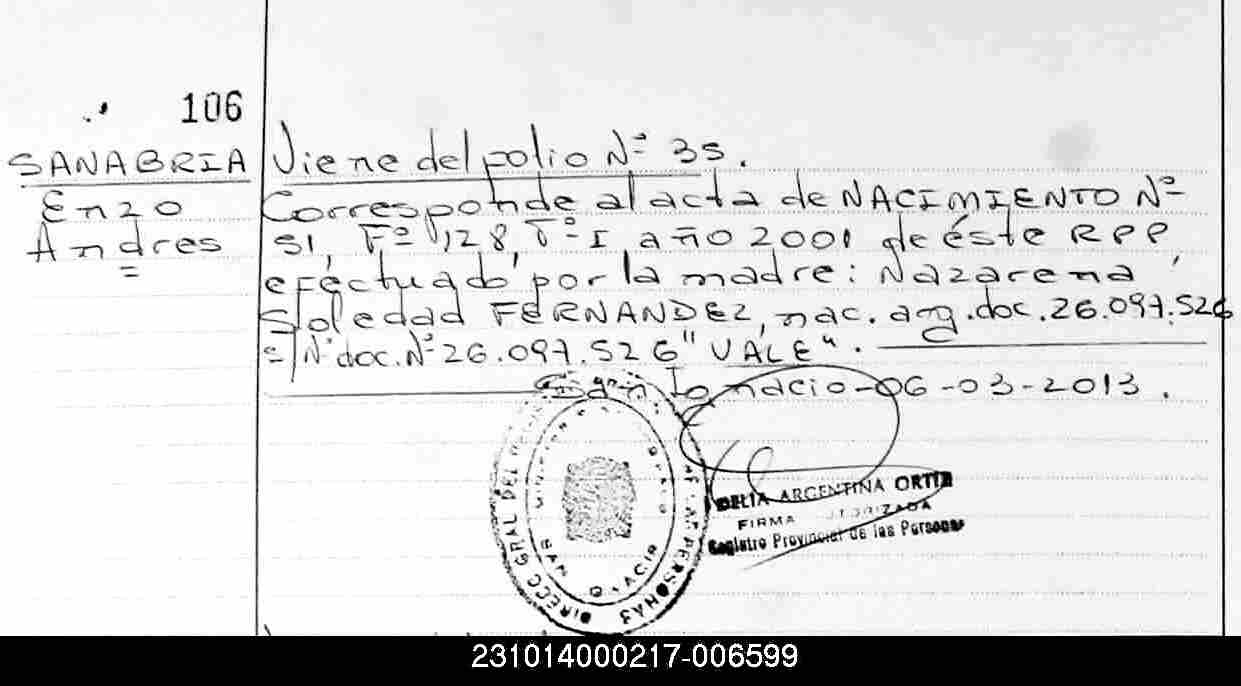 106
SANABRIA
Enzo
Andres
Viene del folio Nº 35.
Corresponde al acta de NACIMIENTO Nº
51, Fº 128, Tº I, año 2001 de éste RPP
efectuado por la madre: Nazarena
Soledad FERNANDEZ, nac. arg. doc. 26.097.526
=/Nº doc. Nº 26.097.526 "VALE".
San Ignacio - 06-03-2013.
DIRECC GRAL DEL
PERSONAS
SAN
DELIA ARGENTINA ORTIZ
FIRMA
Registro Provincial de las Personas
231014000217-006599